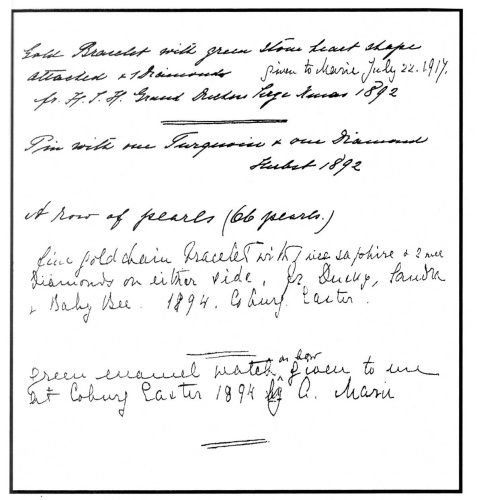 Gold Bracelet with green stone heart shape
attached & 1 Diamonds given to Marie July 22. 1917.
fr. H.I.H. Grand Duchess Serge Xmas 1892
Pin with one Turquoise & one Diamond
Herbst 1892
A row of pearls (66 pearls.)
fine gold chain bracelet with 1 nice sapphire & 2 nice
Diamonds on either side, fr. Ducky, Sandra
& Baby Bee. 1894. Coburg. Easter.
green enamel watch & on bow given to me
at Coburg Easter 1894 by A. Marie